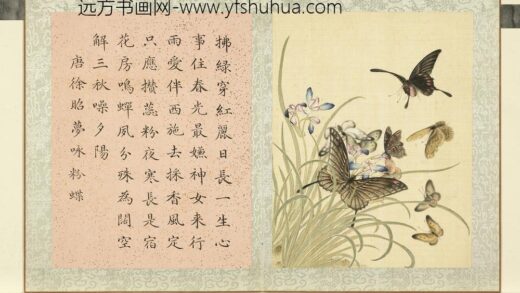 远方书画网-www.yfshuhua.com
拂綠穿紅麗日長一生心
事住春光最嫌神女來行
雨愛伴西施去採香風定
只應攢蕊粉夜寒長是宿
花房鳴蟬夙分殊為闊空
解三秋噪夕陽
唐徐昭夢詠粉蝶